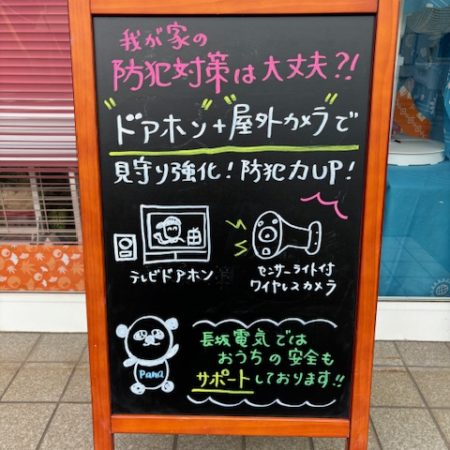 我が家の
防犯対策は大丈夫?!
"ドアホン"+"屋外カメラ"で
見守り強化!防犯力UP!
テレビドアホン
センサーライト付
ワイヤレスカメラ
長坂電気では
おうちの安全も
サポートしております!!
Pana